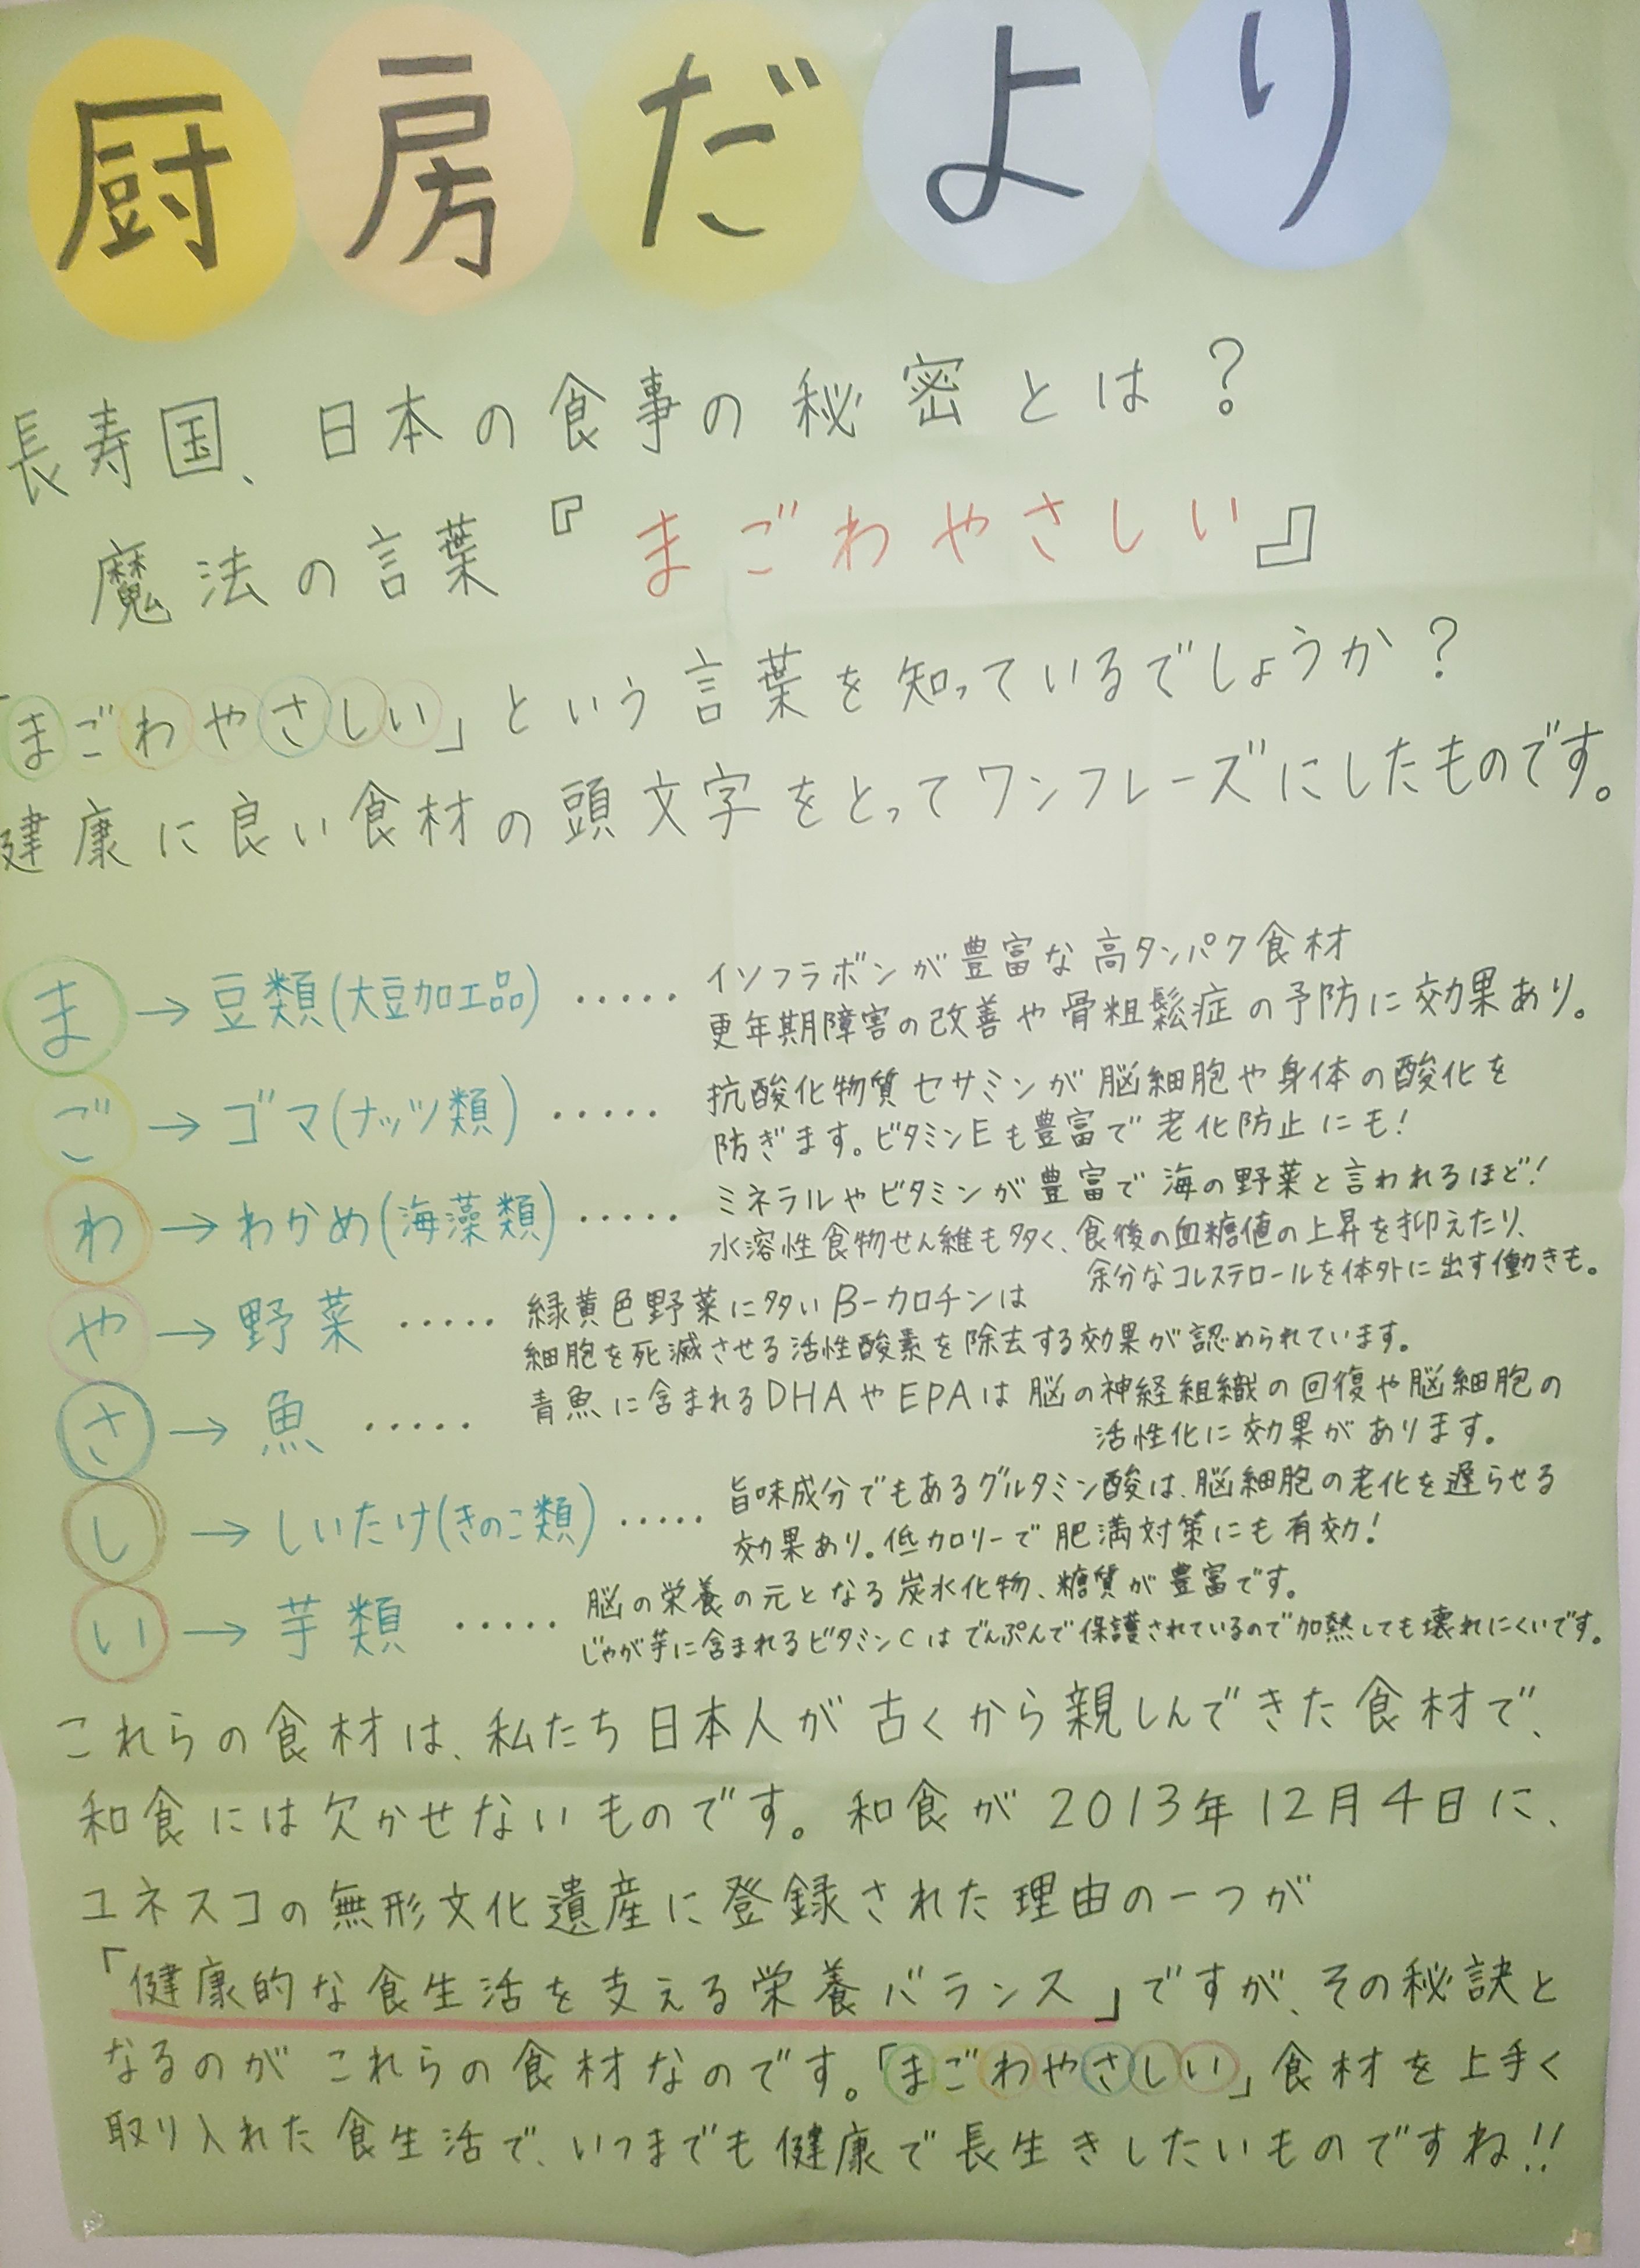 厨房だより
長寿国、日本の食事の秘密とは？
魔法の言葉『まごわやさしい』
「まごわやさしい」という言葉を知っているでしょうか？
健康に良い食材の頭文字をとってワンフレーズにしたものです。
ま→豆類(大豆加工品)‥‥‥イソフラボンが豊富な高タンパク食材
更年期障害の改善や骨粗鬆症の予防に効果あり。
ご→ゴマ(ナッツ類)‥‥‥抗酸化物質セサミンが脳細胞や身体の酸化を
防ぎます。ビタミンEも豊富で老化防止にも!
わ→わかめ(海藻類)‥‥‥ミネラルやビタミンが豊富で海の野菜と言われるほど!
水溶性食物せん維も多く、食後の血糖値の上昇を抑えたり、
余分なコレステロールを体外に出す働きも。
や→野菜‥‥‥緑黄色野菜に多いβ-カロチンは
細胞を死滅させる活性酸素を除去する効果が認められています。
さ→魚‥‥‥青魚に含まれるDHAやEPAは脳の神経組織の回復や脳細胞の
活性化に効果があります。
し→しいたけ(きのこ類)‥‥‥旨味成分でもあるグルタミン酸は、脳細胞の老化を遅らせる
効果あり。低カロリーで肥満対策にも有効!
い→芋類‥‥‥脳の栄養の元となる炭水化物、糖質が豊富です。
じゃが芋に含まれるビタミンCはでんぷんで保護されているので加熱しても壊れにくいです。
これらの食材は、私たち日本人が古くから親しんできた食材で、
和食には欠かせないものです。和食が2013年12月4日に、
ユネスコの無形文化遺産に登録された理由の一つが
「健康的な食生活を支える栄養バランス」ですが、その秘訣と
なるのがこれらの食材なのです。「まごわやさしい」食材を上手く
取り入れた食生活で、いつまでも健康で長生きしたいものですね!!